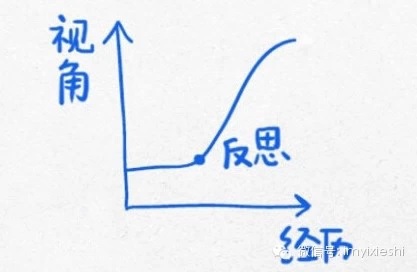 视角
反思
经历
微信号: imyixieshi